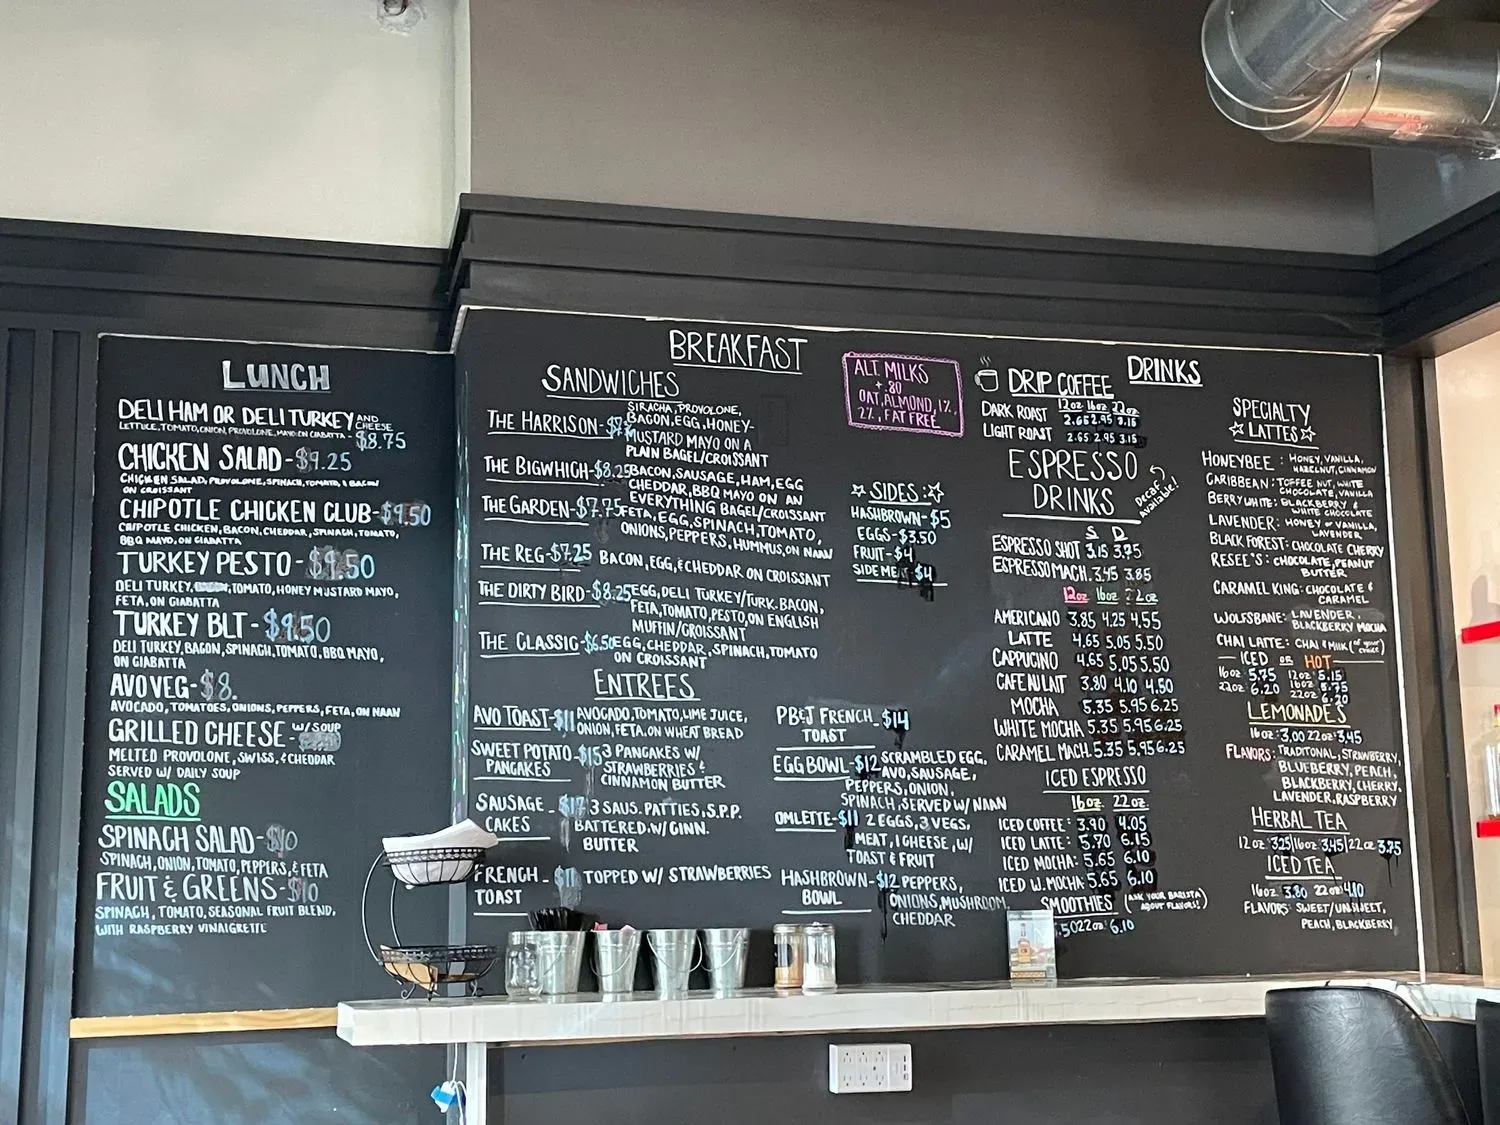 LUNCH
DELI HAM OR DELI TURKEY AND CHEESE
LETTUCE, TOMATO, ONION, PROVOLONE, MAYO-ON CIABATTA - $8.75
CHICKEN SALAD - $9.25
CHICKEN SALAD, PROVOLONE, SPINACH, TOMATO, & BACON
ON CROISSANT
CHIPOTLE CHICKEN CLUB - $9.50
CHIPOTLE CHICKEN, BACON, CHEDDAR, SPINACH, TOMATO,
BBQ MAYO, ON CIABATTA
TURKEY PESTO - $9.50
DELI TURKEY, TOMATO, HONEY MUSTARD MAYO,
FETA, ON CIABATTA
TURKEY BLT - $9.50
DELI TURKEY, BACON, SPINACH, TOMATO, BBQ MAYO,
ON CIABATTA
AVO VEG - $8.
AVOCADO, TOMATOES, ONIONS, PEPPERS, FETA, ON NAAN
GRILLED CHEESE W/ SOUP -
MELTED PROVOLONE, SWISS, & CHEDDAR
SERVED W/ DAILY SOUP
SALADS
SPINACH SALAD - $10
SPINACH, ONION, TOMATO, PEPPERS, & FETA
FRUIT & GREENS - $10
SPINACH, TOMATO, SEASONAL FRUIT BLEND,
WITH RASPBERRY VINAIGRETTE
BREAKFAST
SANDWICHES
THE HARRISON - SIRACHA, PROVOLONE,
BACON, EGG, HONEY-
MUSTARD MAYO ON A
PLAIN BAGEL/CROISSANT
THE BIGWHICH - $8.25 BACON, SAUSAGE, HAM, EGG
CHEDDAR, BBQ MAYO ON AN
EVERYTHING BAGEL/CROISSANT
THE GARDEN - $7.75 FETA, EGG, SPINACH, TOMATO,
ONIONS, PEPPERS, HUMMUS, ON NAAN
THE REG - $7.25 BACON, EGG, & CHEDDAR ON CROISSANT
THE DIRTY BIRD - $8.25 EGG, DELI TURKEY/TURK. BACON,
FETA, TOMATO, PESTO, ON ENGLISH
MUFFIN/CROISSANT
THE CLASSIC - $6.50 EGG, CHEDDAR, SPINACH, TOMATO
ON CROISSANT
ALT. MILKS
+ .80
OAT, ALMOND, 1%,
2%, FAT FREE
☆ SIDES: ☆
HASHBROWN - $5
EGGS - $3.50
FRUIT - $4
SIDE MEAT $4
ENTREES
AVO TOAST - $11 AVOCADO, TOMATO, LIME JUICE,
ONION, FETA. ON WHEAT BREAD
SWEET POTATO PANCAKES - $15 3 PANCAKES W/
STRAWBERRIES &
CINNAMON BUTTER
SAUSAGE CAKES - 3 SAUS. PATTIES, S.P.P.
BATTERED W/ CINN.
BUTTER
FRENCH TOAST - TOPPED W/ STRAWBERRIES
PB&J FRENCH TOAST - $14
EGG BOWL - $12 SCRAMBLED EGG,
AVO, SAUSAGE,
PEPPERS, ONION.
SPINACH, SERVED W/ NAAN
OMLETTE - $11 2 EGGS, 3 VEGS,
MEAT, 1 CHEESE, W/
TOAST & FRUIT
HASHBROWN BOWL - $12 PEPPERS,
ONIONS, MUSHROOM,
CHEDDAR
DRINKS
DRIP COFFEE
12oz 16oz 22oz
DARK ROAST 2.65 2.95 3.15
LIGHT ROAST 2.65 2.95 3.15
ESPRESSO
DRINKS
DECAF Available!
S D
ESPRESSO SHOT 3.15 3.75
ESPRESSO MACH. 3.45 3.85
12oz 16oz 22oz
AMERICANO 3.85 4.25 4.55
LATTE 4.65 5.05 5.50
CAPPUCINO 4.65 5.05 5.50
CAFE AU LAIT 3.80 4.10 4.50
MOCHA 5.35 5.95 6.25
WHITE MOCHA 5.35 5.95 6.25
CARAMEL MACH. 5.35 5.95 6.25
ICED ESPRESSO
16oz 22oz
ICED COFFEE: 3.90 4.05
ICED LATTE: 5.70 6.15
ICED MOCHA: 5.65 6.10
ICED W. MOCHA 5.65 6.10
SMOOTHIES (ASK YOUR BARISTA ABOUT FLAVORS!)
22oz: 6.10
SPECIALTY
☆ LATTES ☆
HONEYBEE: HONEY, VANILLA,
HAZELNUT, CINNAMON
CARIBBEAN: TOFFEE NUT, WHITE
CHOCOLATE, VANILLA
BERRY WHITE: BLACKBERRY &
WHITE CHOCOLATE
LAVENDER: HONEY or VANILLA,
LAVENDER
BLACK FOREST: CHOCOLATE CHERRY
RESEE'S: CHOCOLATE, PEANUT
BUTTER
CARAMEL KING: CHOCOLATE &
CARAMEL
WOLFSBANE: LAVENDER,
BLACKBERRY MOCHA
CHAI LATTE: CHAI & MILK (of your choice)
ICED OR HOT
16oz 5.75 12oz 5.15
22oz 6.20 16oz 5.75
22oz 6.20
LEMONADES
16oz: 3.00 22oz: 3.45
FLAVORS: TRADITONAL, STRAWBERRY,
BLUEBERRY, PEACH,
BLACKBERRY, CHERRY,
LAVENDER, RASPBERRY
HERBAL TEA
12oz 3.25 | 16oz 3.45 | 22oz 3.75
ICED TEA
16oz 3.80 22oz 4.10
FLAVORS: SWEET/UNSWEET,
PEACH, BLACKBERRY